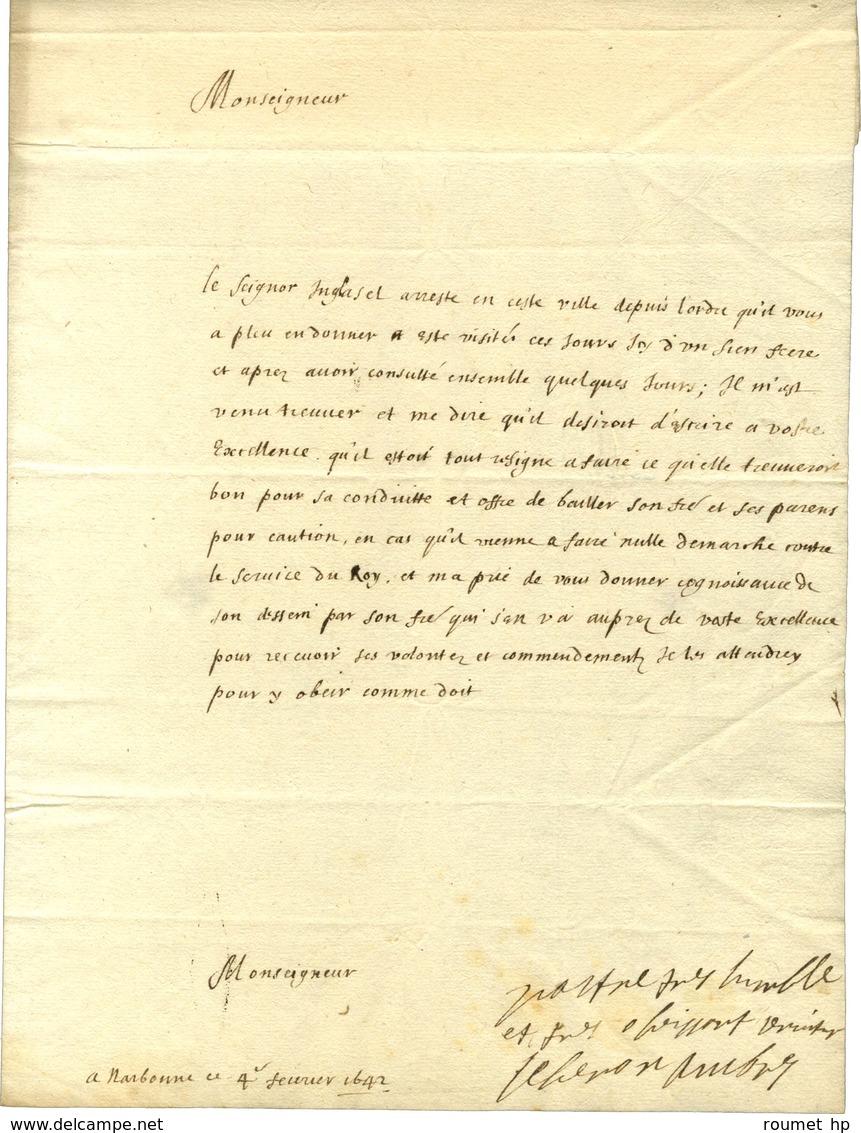 Monseigneur
le seignor Inglasel arreste en ceste ville depuis l'ordre qu'il vous
a pleu en donner a este visité ces Jours Icy d'un sien frere
et aprez avoir consulté ensemble quelques Jours; Il m'est
venu treuver et me dire qu'il desiroit d'escrire a vostre
Excellence qu'il estoit tout resigne a faire ce qu'elle treuveroit
bon pour sa conduitte et offre de bailler son fré et ses parens
pour caution, en cas qu'il vienne a faire nulle demarche contre
le service du Roy, et m'a prié de vous donner cognoissance de
son dessein par son fré qui s'en va auprez de vostre Excellence
pour recevoir ses volontez et commendementz Je les attendrey
pour y obeir comme doit
Monseigneur
vostre tres humble
et tres obeissant
a Narbonne ce 4e feuvrier 1642
roumet hp